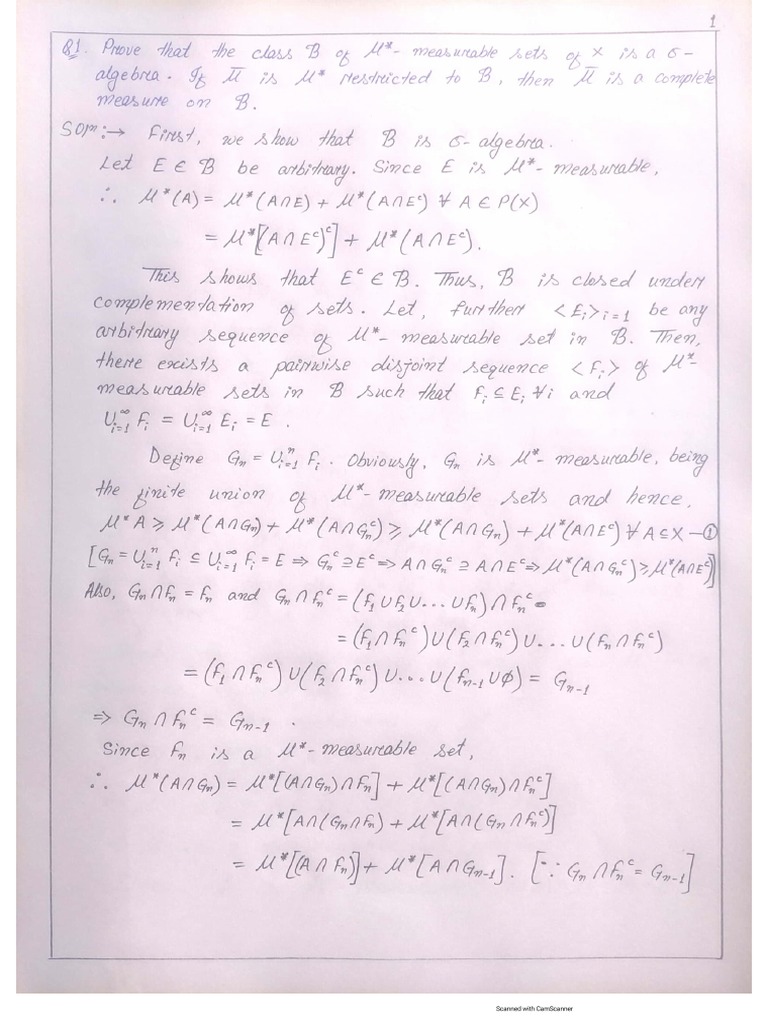 1
Q1. Prove that the class B of μ*- measurable sets of X is a σ-
algebra. If μ̅ is μ* restricted to B, then μ̅ is a complete
measure on B.
Soln:→ First, we show that B is σ-algebra.
Let E ∈ B be arbitrary. Since E is μ*-measurable,
∴ μ*(A) = μ*(A∩E) + μ*(A∩Eᶜ) ∀ A ∈ P(X)
= μ*[(A∩Eᶜ)ᶜ] + μ*(A∩Eᶜ).
This shows that Eᶜ ∈ B. Thus, B is closed under
complementation of sets. Let, further <Eᵢ>ᵢ₌₁ be any
arbitrary sequence of μ*-measurable set in B. Then,
there exists a pairwise disjoint sequence <Fᵢ> of μ*-
measurable sets in B such that Fᵢ ⊆ Eᵢ ∀i and
∪ᵢ₌₁^∞ Fᵢ = ∪ᵢ₌₁^∞ Eᵢ = E .
Define Gₙ = ∪ᵢ₌₁ⁿ Fᵢ . Obviously, Gₙ is μ*-measurable, being
the finite union of μ*-measurable sets and hence,
μ*A ≥ μ*(A∩Gₙ) + μ*(A∩Gₙᶜ) ≥ μ*(A∩Gₙ) + μ*(A∩Eᶜ) ∀ A ⊆ X —①
[Gₙ = ∪ᵢ₌₁ⁿ Fᵢ ⊆ ∪ᵢ₌₁^∞ Fᵢ = E ⇒ Gₙᶜ ⊇ Eᶜ ⇒ A∩Gₙᶜ ⊇ A∩Eᶜ ⇒ μ*(A∩Gₙᶜ) ≥ μ*(A∩Eᶜ)]
Also, Gₙ∩Fₙ = Fₙ and Gₙ∩Fₙᶜ = (F₁∪F₂∪...∪Fₙ)∩Fₙᶜ
= (F₁∩Fₙᶜ)∪(F₂∩Fₙᶜ)∪...∪(Fₙ∩Fₙᶜ)
= (F₁∩Fₙᶜ)∪(F₂∩Fₙᶜ)∪...∪(Fₙ₋₁∪φ) = Gₙ₋₁
⇒ Gₙ∩Fₙᶜ = Gₙ₋₁ .
Since Fₙ is a μ*-measurable set,
∴ μ*(A∩Gₙ) = μ*[(A∩Gₙ)∩Fₙ] + μ*[(A∩Gₙ)∩Fₙᶜ]
= μ*[A∩(Gₙ∩Fₙ) + μ*[A∩(Gₙ∩Fₙᶜ)]
= μ*[(A∩Fₙ)] + μ*[A∩Gₙ₋₁]. [∵ Gₙ∩Fₙᶜ = Gₙ₋₁]
Scanned with CamScanner